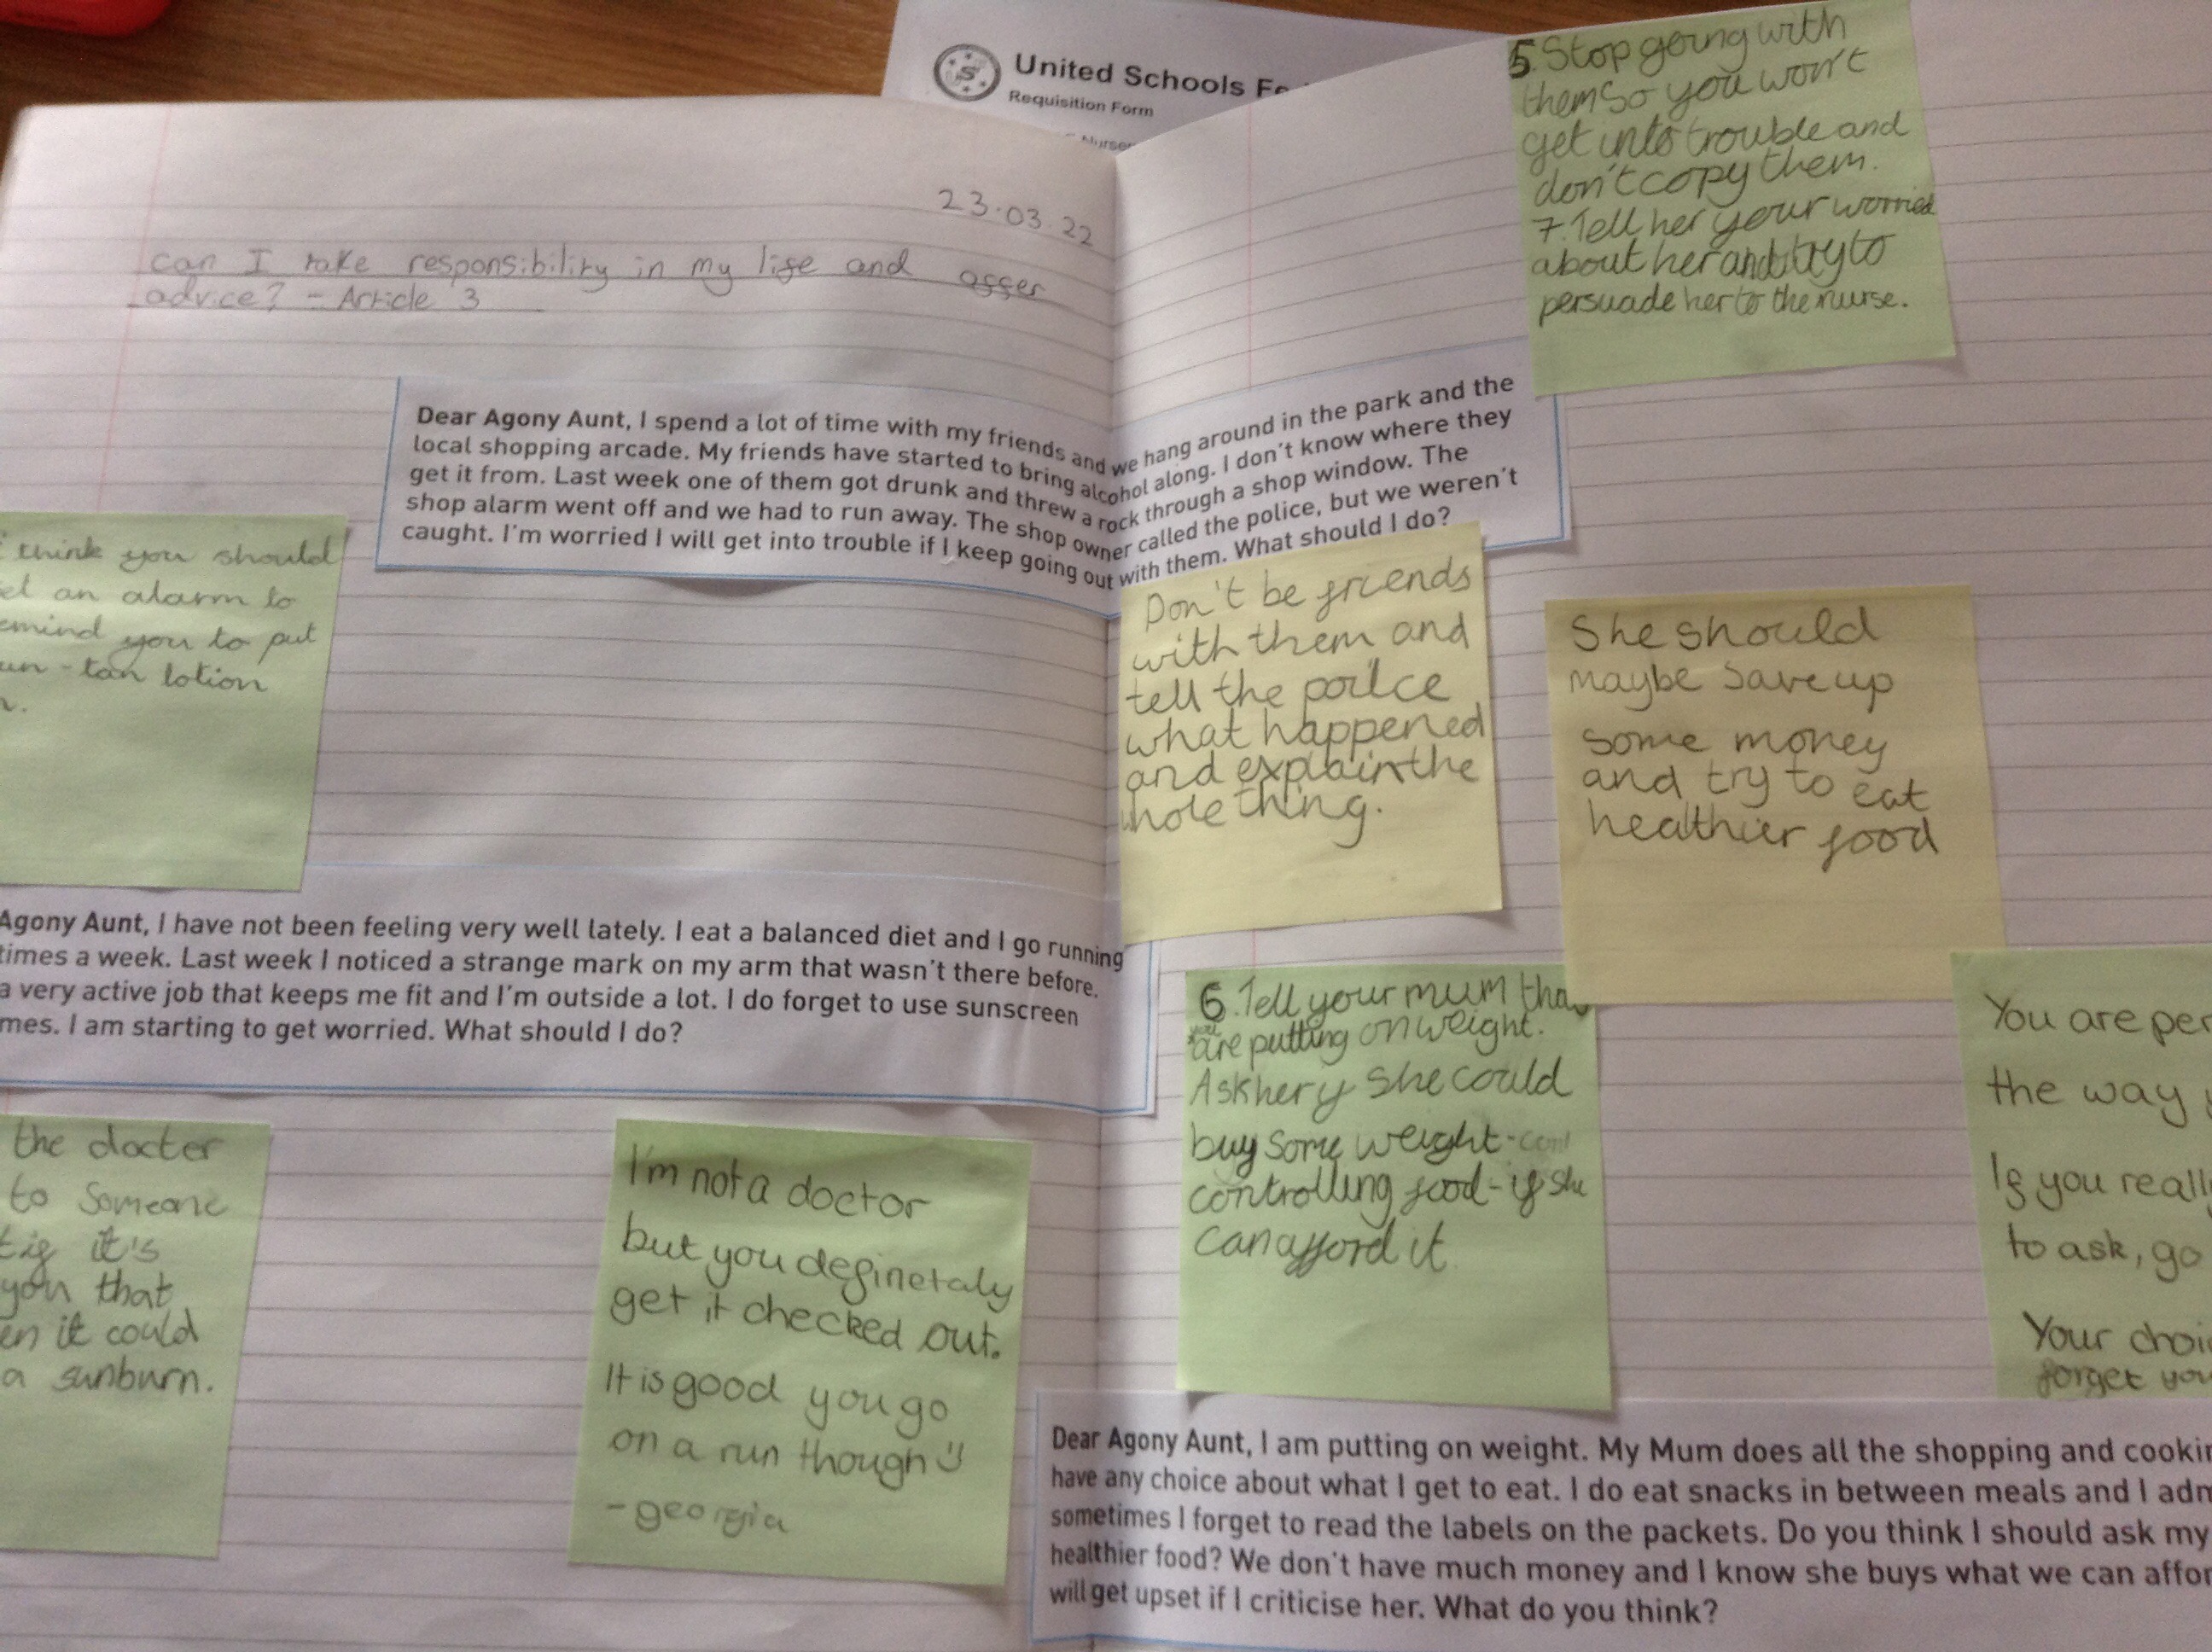 United Schools Fe
Requisition Form
23.03.22
can I take responsibility in my life and offer
advice? - Article 3
5. Stop going with
them so you won't
get into trouble and
don't copy them.
7. Tell her your worried
about her and try to
persuade her to the nurse.
Dear Agony Aunt, I spend a lot of time with my friends and we hang around in the park and the
local shopping arcade. My friends have started to bring alcohol along. I don't know where they
get it from. Last week one of them got drunk and threw a rock through a shop window. The
shop alarm went off and we had to run away. The shop owner called the police, but we weren't
caught. I'm worried I will get into trouble if I keep going out with them. What should I do?
think you should
an alarm to
you to put
-tan lotion
Don't be friends
with them and
tell the poilce
what happened
and explain the
whole thing.
She should
maybe save up
some money
and try to eat
healthier food
Agony Aunt, I have not been feeling very well lately. I eat a balanced diet and I go running
times a week. Last week I noticed a strange mark on my arm that wasn't there before.
a very active job that keeps me fit and I'm outside a lot. I do forget to use sunscreen
mes. I am starting to get worried. What should I do?
the docter
to someone
it's
you that
en it could
a sunburn.
I'm not a doctor
but you definetaly
get it checked out.
It is good you go
on a run though
- georgia
6. Tell your mum tha
you
are putting on weight.
Ask her if she could
buy some weight-
controlling food - if she
can afford it
You are per
the way y
If you really
to ask, go
Your choi
forget you
Dear Agony Aunt, I am putting on weight. My Mum does all the shopping and cookin
have any choice about what I get to eat. I do eat snacks in between meals and I adm
sometimes I forget to read the labels on the packets. Do you think I should ask my
healthier food? We don't have much money and I know she buys what we can affor
will get upset if I criticise her. What do you think?